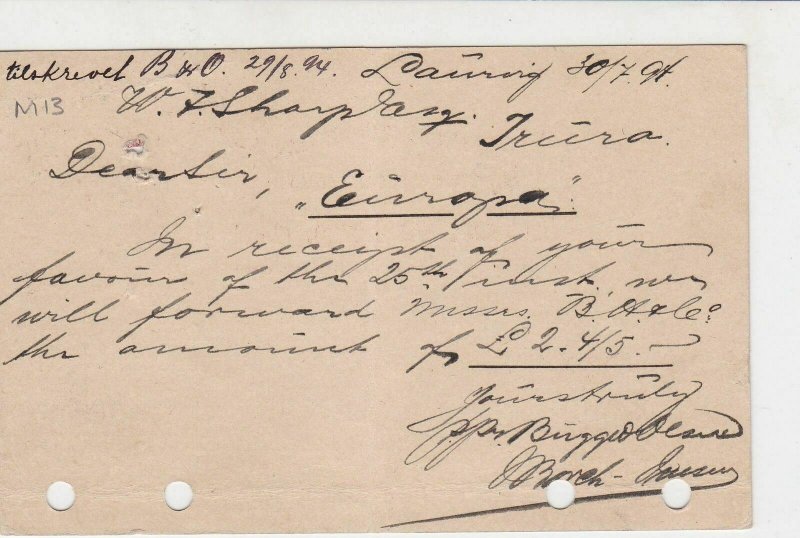 tilskrevet B & O. 29/8. 94. Laurvig 30/7. 94.
M13 W. F. Sharp Esq. Truro.
Dear Sir,
"Europa".
In receipt of your
favour of the 25th inst. we
will forward Messrs. B. O. & Co
the amount of £ 2. 4/5. –
Yours truly
ppr. Bugge & Olsen